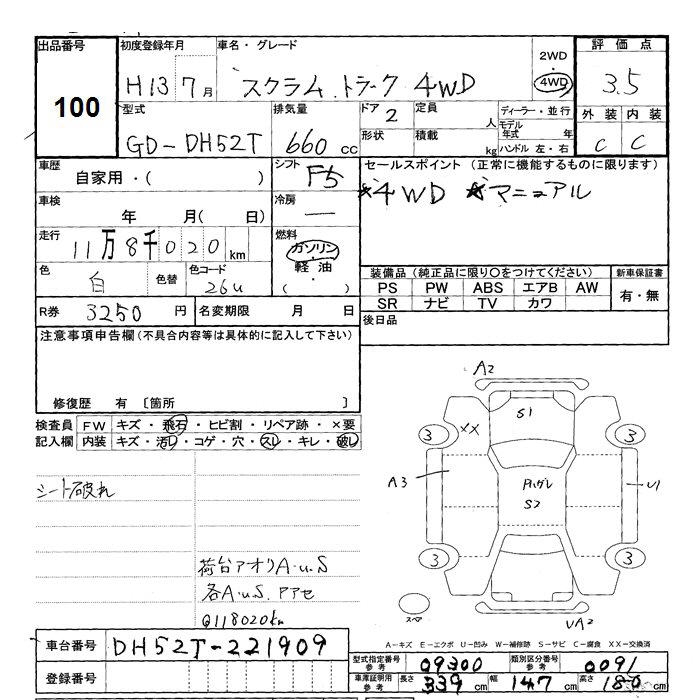 出品番号 初度登録年月 車名・グレード 2WD 評価点
100 H13 7月 スクラム トラック 4WD 4WD 3.5
型式 排気量 ドア 2 定員 人 ディーラー・並行 外装 内装
GD-DH52T 660cc 形状 積載 kg モデル年式 年 C C
ハンドル 左・右
車歴 シフト セールスポイント (正常に機能するものに限ります)
自家用・( ) F5 *4WD *マニュアル
車検 年 月( 日) 冷房 —
走行 燃料
11万8千020km ガソリン
軽油
( )
色 白 色替 色コード 26U
装備品(純正品に限り○をつけてください) 新車保証書
PS PW ABS エアB AW 有・無
SR ナビ TV カワ
R券 3250円 名変期限 月 日 後日品
注意事項申告欄(不具合内容等は具体的に記入して下さい)
修復歴 有 〔箇所 〕
検査員 FW キズ・飛石・ヒビ割・リペア跡・×要
記入欄 内装 キズ・汚レ・コゲ・穴・スレ・キレ・破レ
シート破れ
荷台アオリA・u・S
各A・u・S.
Q118020km
A2
S1
3 XX 3
A3 S2 U1
3 3
スペア UA2
A-キズ E-エクボ U-凹み W-補修跡 S-サビ C-腐食 XX-交換済
車台番号 DH52T-221909
登録番号
型式指定番号 参考 09300 類別区分番号 参考 0091
車庫証明用 参考 長さ 339cm 幅 147cm 高さ 180cm